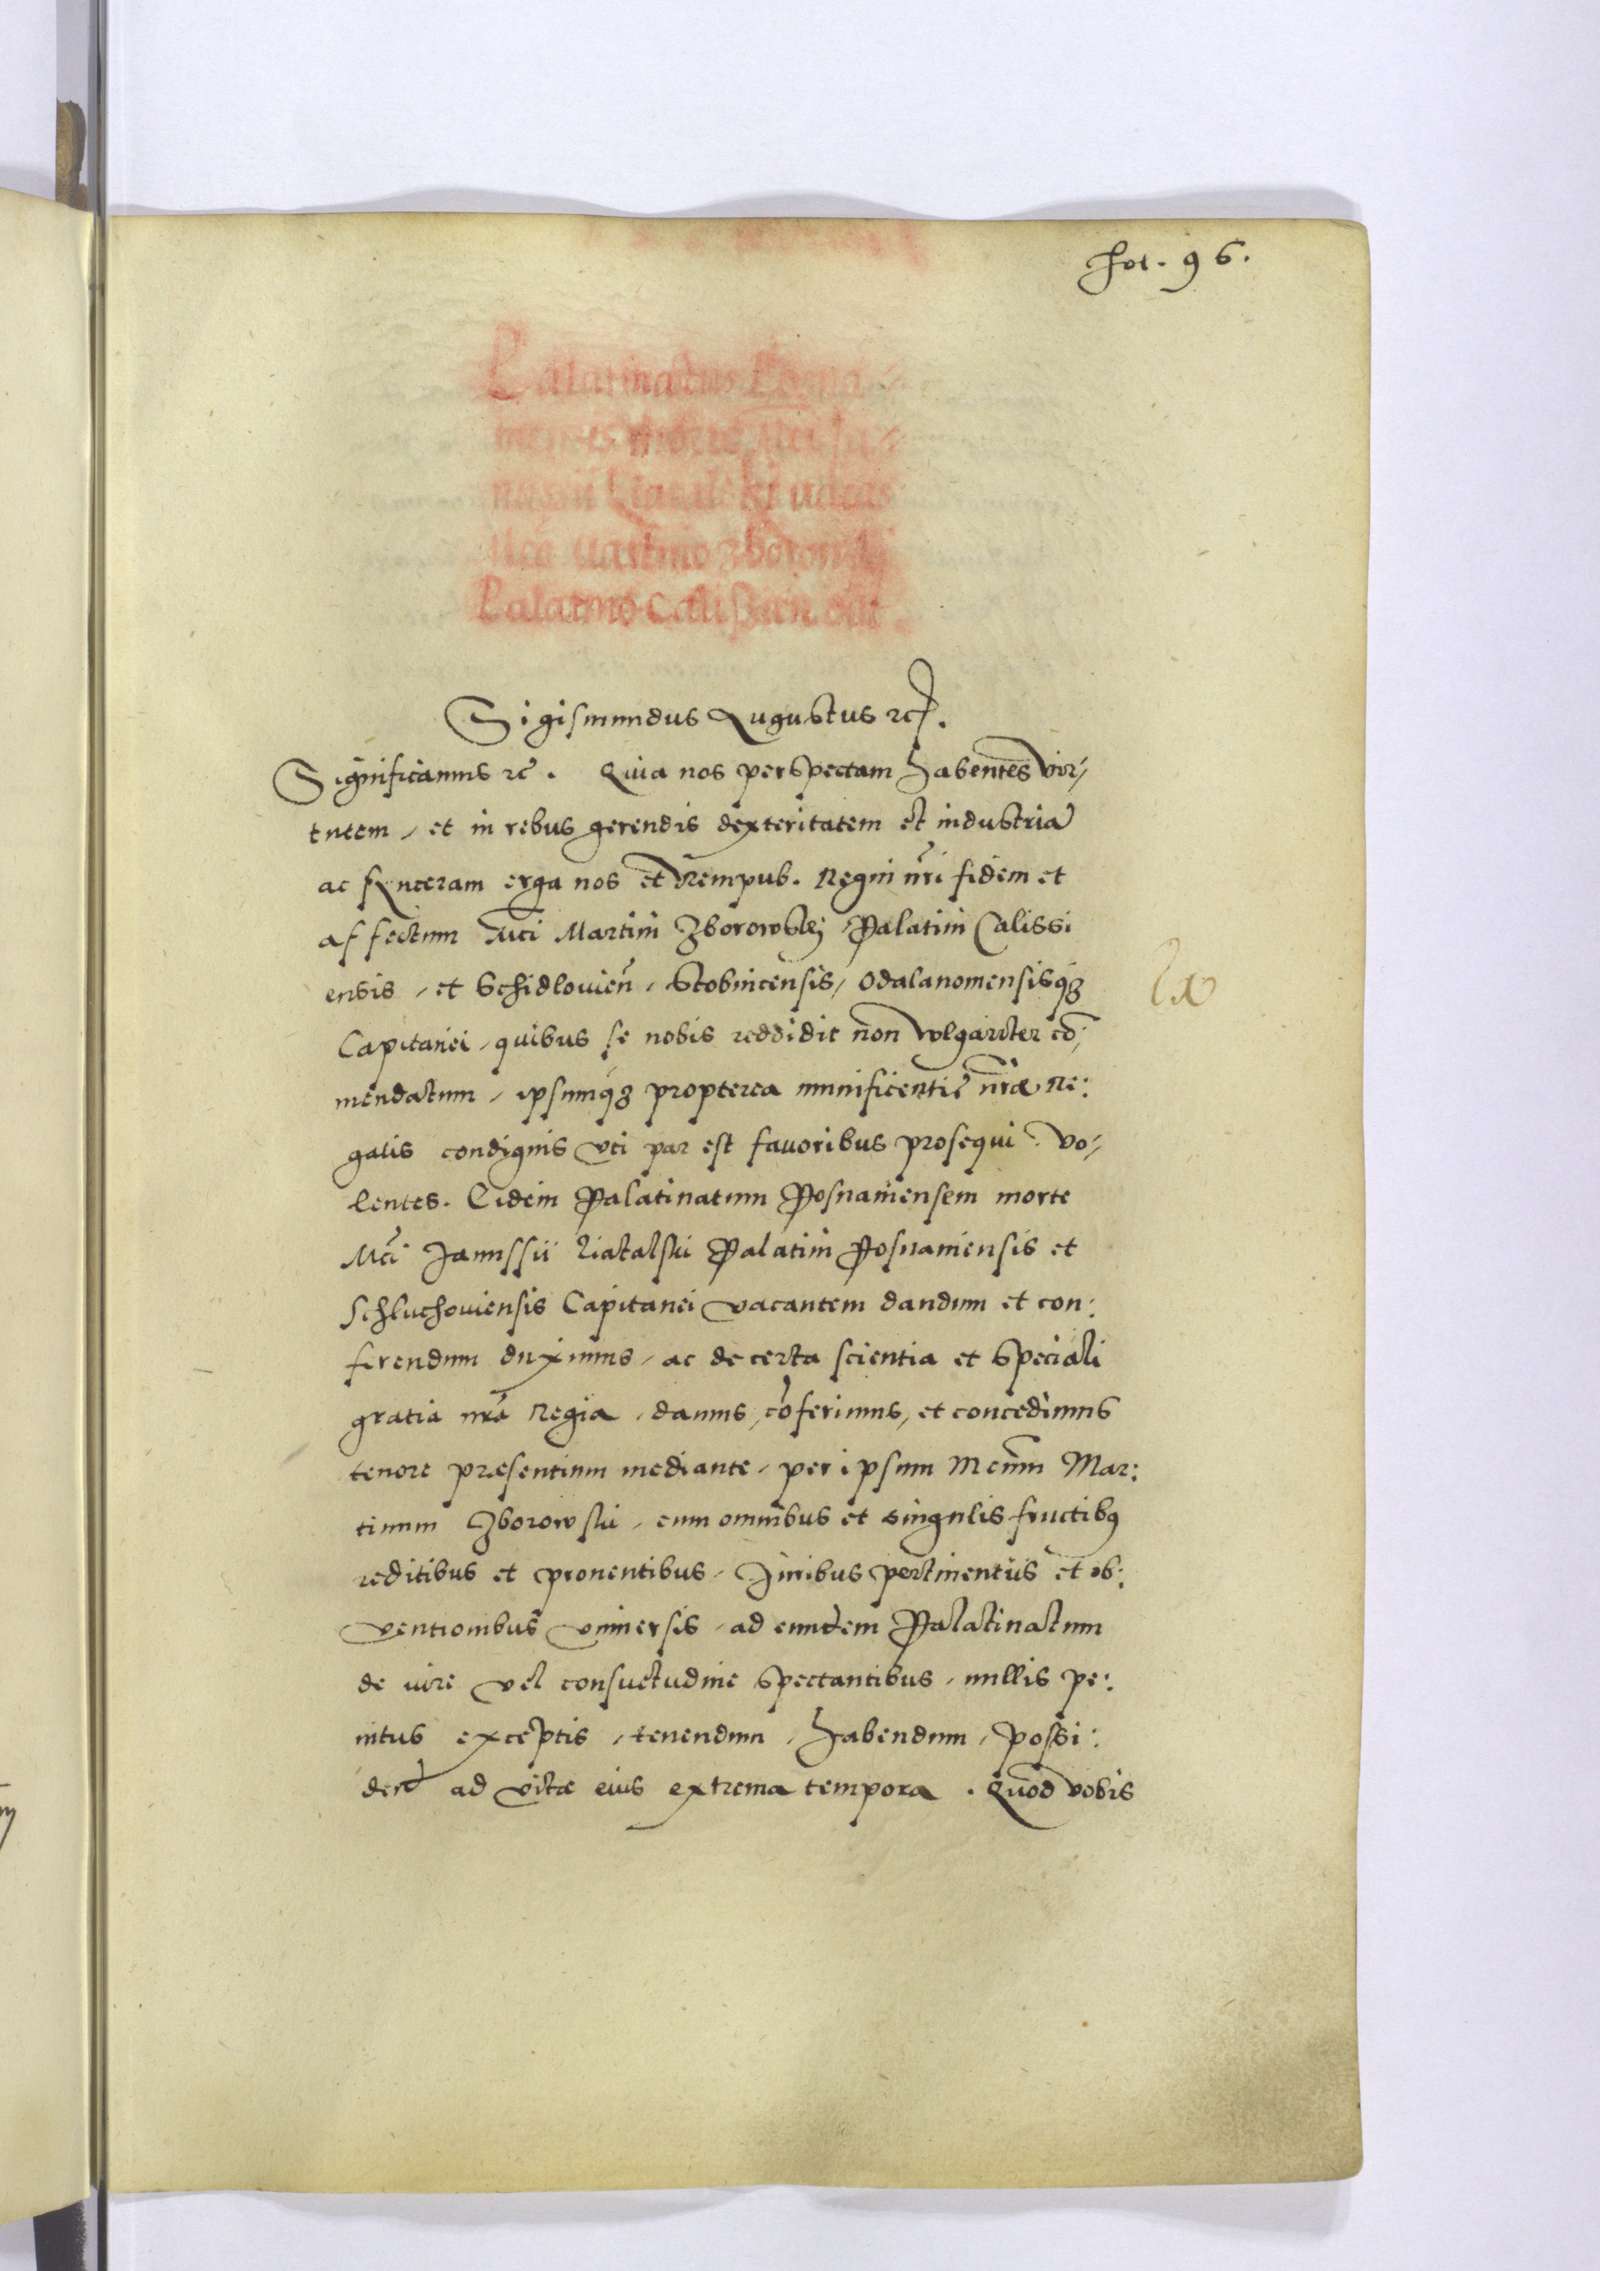 fol. 96.
Palatinatus Posna-
niensis morte Mci Ja-
nussii Liatalski vacans
Mco Martino Zborowski
Palatino Calissien. dat.
Sigismundus Augustus etc.
Significamus etc. Quia nos perspectam habentes vir-
tutem, et in rebus gerendis dexteritatem et industriā
ac synceram erga nos et Rempub. Regni nr̄i fidem et
affectum Mci Martini Zborowskij Palatini Calissi
ensis, et Schidlovień, Stobnicensis, Odalanoviensisq3
Capitanei, quibus se nobis reddidit non vulgariter cō:
mendatum, ipsumq3 propterea munificentie nr̄æ Re:
galis condignis uti par est favoribus prosequi vo-
lentes. Eidem Palatinatum Posnaniensem morte
Mci Janussii Liatalski Palatini Posnaniensis et
Schluchoviensis Capitanei vacantem dandum et con:
ferendum duximus, ac de certa scientia et speciali
gratia nr̄a Regia, damus, cōferimus, et concedimus
tenore præsentium mediante, per ipsum Mcum Mar:
tinum Zborowski, cum omnibus et singulis fructibꝫ
reditibus et proventibus, Juribus pertinentiis et ob:
ventionibus universis, ad eundem Palatinatum
de iure vel consuetudine spectantibus, nullis pe:
nitus exceptis, tenendum, habendum, possi:
dend ad vitæ eius extrema tempora. Quod vobis